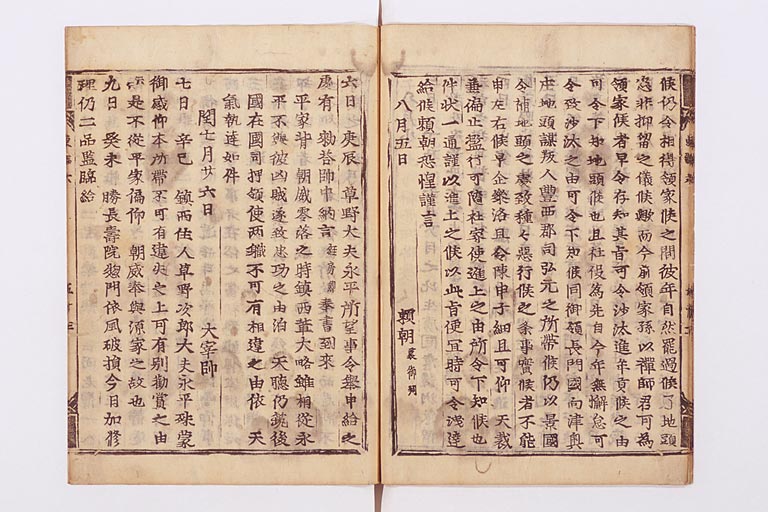 候仍令相博領家候之間彼年自然罷過候了地頭
忽非抑留之儀候歟而今前領家孫以禪師君可為
領家候者早令存知其旨可令沙汰進年貢候之由
可令下知地頭候也且 為先自今年無懈怠可
令致沙汰之由可令下知候同御領長門國向津奥
庄地頭謀叛人豊西郡司弘元之所帶候仍以景國
令補地頭之處致種々惡行候之条事實候者不能
申左右候早企 洛且令陳申子細且可仰 天裁
 行可隨社家使進上之由所令下知候也
件狀一通謹以進上之候以此旨便冝時可令洩達
給候頼朝恐惶謹言
八月五日
頼朝裏御判
六日 庚辰 草野大夫永平所望事令擧申給之
處有 勅荅師中納言 奉書到来
 平家背朝威零落之時鎮西軰大略雖相從永
平不與彼凶賊遂致忠功之由治 天聽仍筑後
國在國司押領使兩職不可有相違之由依 天
氣執達如件
閏七月廿六日
太宰帥
七日 辛巳 鎮西住人草野次郎大夫永平殊蒙
御感仰本所帶不可有違失之上可有別勸賞之由
 是不從平家偏仰 朝威奉與源家之故也
九日 癸未 勝長壽院惣門依風破損今日加修
理仍二品監臨給